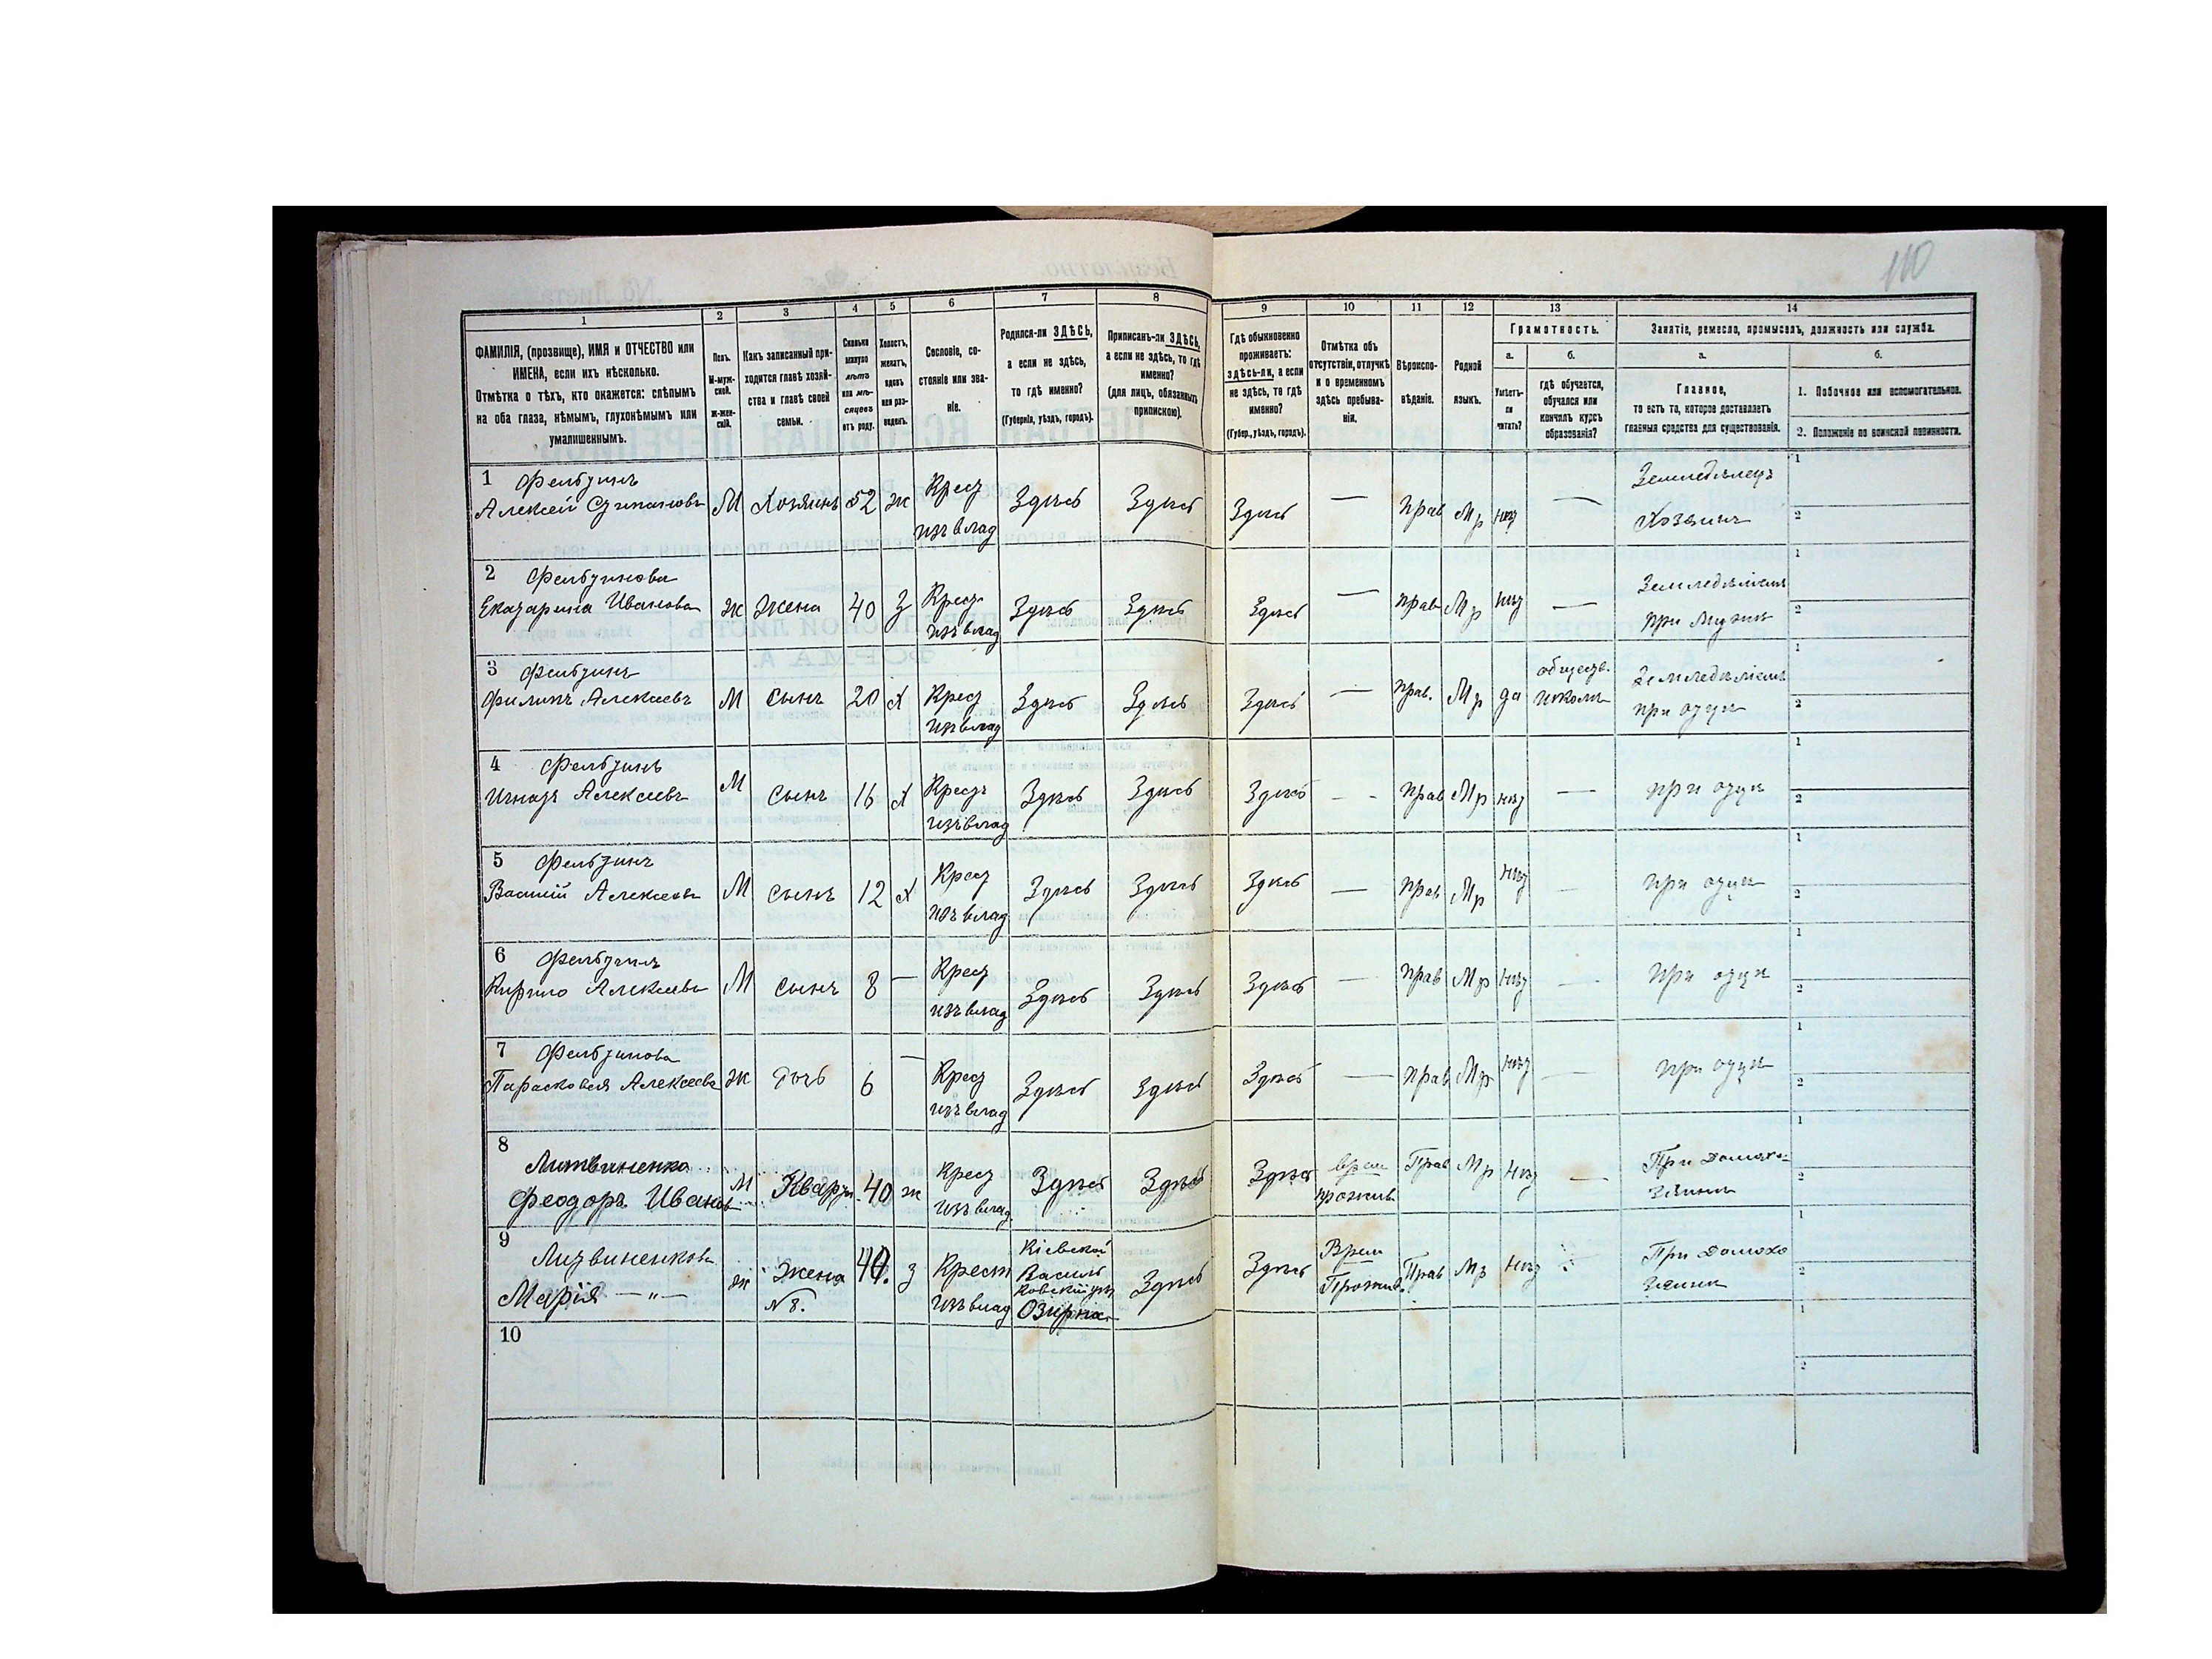 110
1
2
3
4
5
6
7
8
9
10
11
12
13
14
ФАМИЛІЯ, (прозвище), ИМЯ и ОТЧЕСТВО или
ИМЕНА, если ихъ нѣсколько.
Отмѣтка о тѣхъ, кто окажется: слѣпымъ
на оба глаза, нѣмымъ, глухонѣмымъ или
умалишеннымъ.
Полъ.
М-муж-
ской.
Ж-жен-
скій.
Какъ записанный при-
ходится главѣ хозяй-
ства и главѣ своей
семьи.
Сколько
минуло
лѣтъ
или мѣ-
сяцевъ
отъ роду.
Холостъ,
женатъ,
вдовъ
или раз-
веденъ.
Сословіе, со-
стояніе или зва-
ніе.
Родился-ли ЗДѢСЬ,
а если не здѣсь,
то гдѣ именно?
(Губернія, уѣздъ, городъ).
Приписанъ-ли ЗДѢСЬ,
а если не здѣсь, то гдѣ
именно?
(для лицъ, обязанныхъ
припискою).
Гдѣ обыкновенно
проживаетъ:
здѣсь-ли, а если
не здѣсь, то гдѣ
именно?
(Губер., уѣздъ, городъ).
Отмѣтка объ
отсутствіи, отлучкѣ
и о временномъ
здѣсь пребыва-
ніи.
Вѣроиспо-
вѣданіе.
Родной
языкъ.
Грамотность.
а.
Умѣетъ-
ли
читать?
б.
гдѣ обучается,
обучался или
кончилъ курсъ
образованія?
Занятіе, ремесло, промыселъ, должность или служба.
а.
Главное,
то есть то, которое доставляетъ
главныя средства для существованія.
б.
1. Побочное или вспомогательное.
2. Положеніе по воинской повинности.
1
Алексей
М Хозяинъ 52 ж Крест
изъ влад
Здѣсь Здѣсь Здѣсь — Прав Мр нѣт —
Земледѣлецъ
Хозяинъ
1
2
2
Екатарина Иванова
ж жена 40 З Крест
изъ влад
Здѣсь Здѣсь Здѣсь — прав Мр нѣт —
при мужи
1
2
3
Филипъ Алексеевъ
М сынъ 20 Х Крест
изъ влад
Здѣсь Здѣсь Здѣсь — прав. Мр да обществ.
школи
при отци
1
2
4
Игнатъ Алексеевъ
М сынъ 16 Х Крестъ
изъ влад
Здѣсь Здѣсь Здѣсь - - прав Мр нѣт —
при отци
1
2
5
Василій Алексеевъ
М сынъ 12 Х Крест
изъ влад
Здѣсь Здѣсь Здѣсь — прав Мр нѣт —
при отци
1
2
6
Кирило Алексеевъ
М сынъ 8 — Крест
изъ влад
Здѣсь Здѣсь Здѣсь — прав Мр нѣт —
при отци
1
2
7
Парасковея Алексеева
ж дочь 6 — Крест
изъ влад
Здѣсь Здѣсь Здѣсь — прав Мр нѣт —
при отци
1
2
8
Литвиненко
Феодоръ Иванов
М Квартн. 40 ж Крест
изъ влад.
Здѣсь Здѣсь Здѣсь врем
прожив
Прав Мр нѣт —
При домохо-
зяини
1
2
9
Литвиненкова
Марія — " —
ж жена
№ 8.
з Крест
изъ влад
Кіевской
Василь
ковскій уѣз
Озирна.
Здѣсь Здѣсь Врем
Прожив.
Прав Мр нѣт
При домохо
зяини
1
2
10
1
2